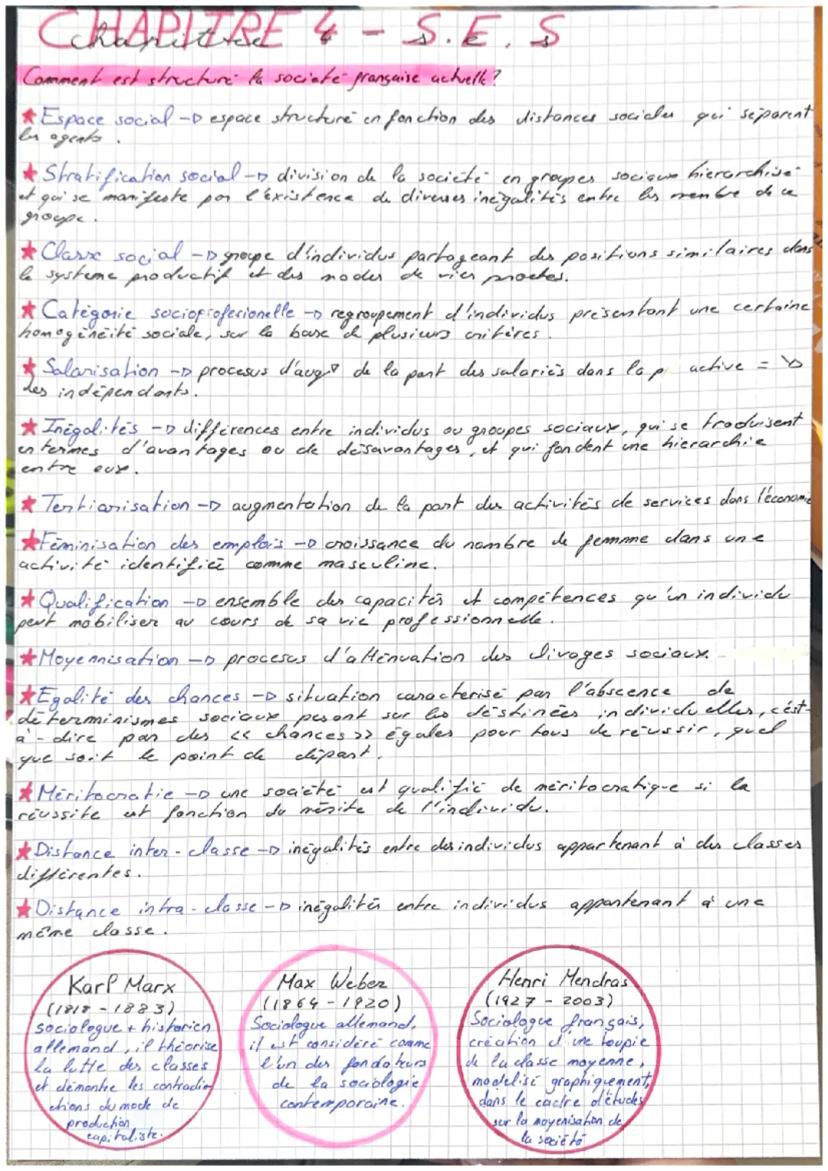 CHAPITRE 4 - S.E.S
Chapitre
Comment est structuré la société française actuelle ?
★ Espace social → espace structuré en fonction des distances sociales qui séparent
les agents.
★ Stratification social → division de la société en groupes sociaux hierarchisé
et qui se manifeste par l'existence de diverses inégalités entre les membre de ce
groupe.
★ Classe social → groupe d'individus partageant des positions similaires dans
le système productif et des modes de vies proches.
★ Catégorie socioprofesionelle → regroupement d'individus présentant une certaine
homogénéité sociale, sur la base de plusieurs critères.
★ Salarisation → procesus d'augt de la part des salariés dans la p active = ↘
des indépendants.
★ Inégalités → différences entre individus ou groupes sociaux, qui se traduisent
en termes d'avantages ou de désavantages, et qui fondent une hierarchie
entre eux.
★ Tertiarisation → augmentation de la part des activités de services dans l'économie
★ Féminisation des emplois → croissance du nombre de femmme dans une
activité identifiée comme masculine.
★ Qualification → ensemble des capacités et compétences qu'un individu
peut mobiliser au cours de sa vie professionnelle.
★ Moyennisation → procesus d'atténuation des clivages sociaux.
★ Egalité des chances → situation caracterisé par l'abscence de
déterminismes sociaux pesant sur les déstinées individuelles, c'est-
à-dire par des << chances >> égales pour tous de réussir, quel
que soit le point de départ.
★ Méritocratie → une société est qualifié de méritocratique si la
réussite est fonction du mérite de l'individu.
★ Distance inter-classe → inégalités entre des individus appartenant à des classes
différentes.
★ Distance intra-classe → inégalités entre individus appartenant à une
même classe.
Karl Marx
(1818 - 1883)
sociologue + historien
allemand, il théorise
la lutte des classes
et démontre les contradic
ctions du mode de
production
capitaliste.
Max Weber
(1864 - 1920)
Sociologue allemand,
il est considéré comme
l'un des fondateurs
de la sociologie
contemporaine.
Henri Mendras
(1927 - 2003)
Sociologue français,
création d'une toupie
de la classe moyenne,
modélisé graphiquement,
dans le cadre d'études
sur la moyenisation de
la société